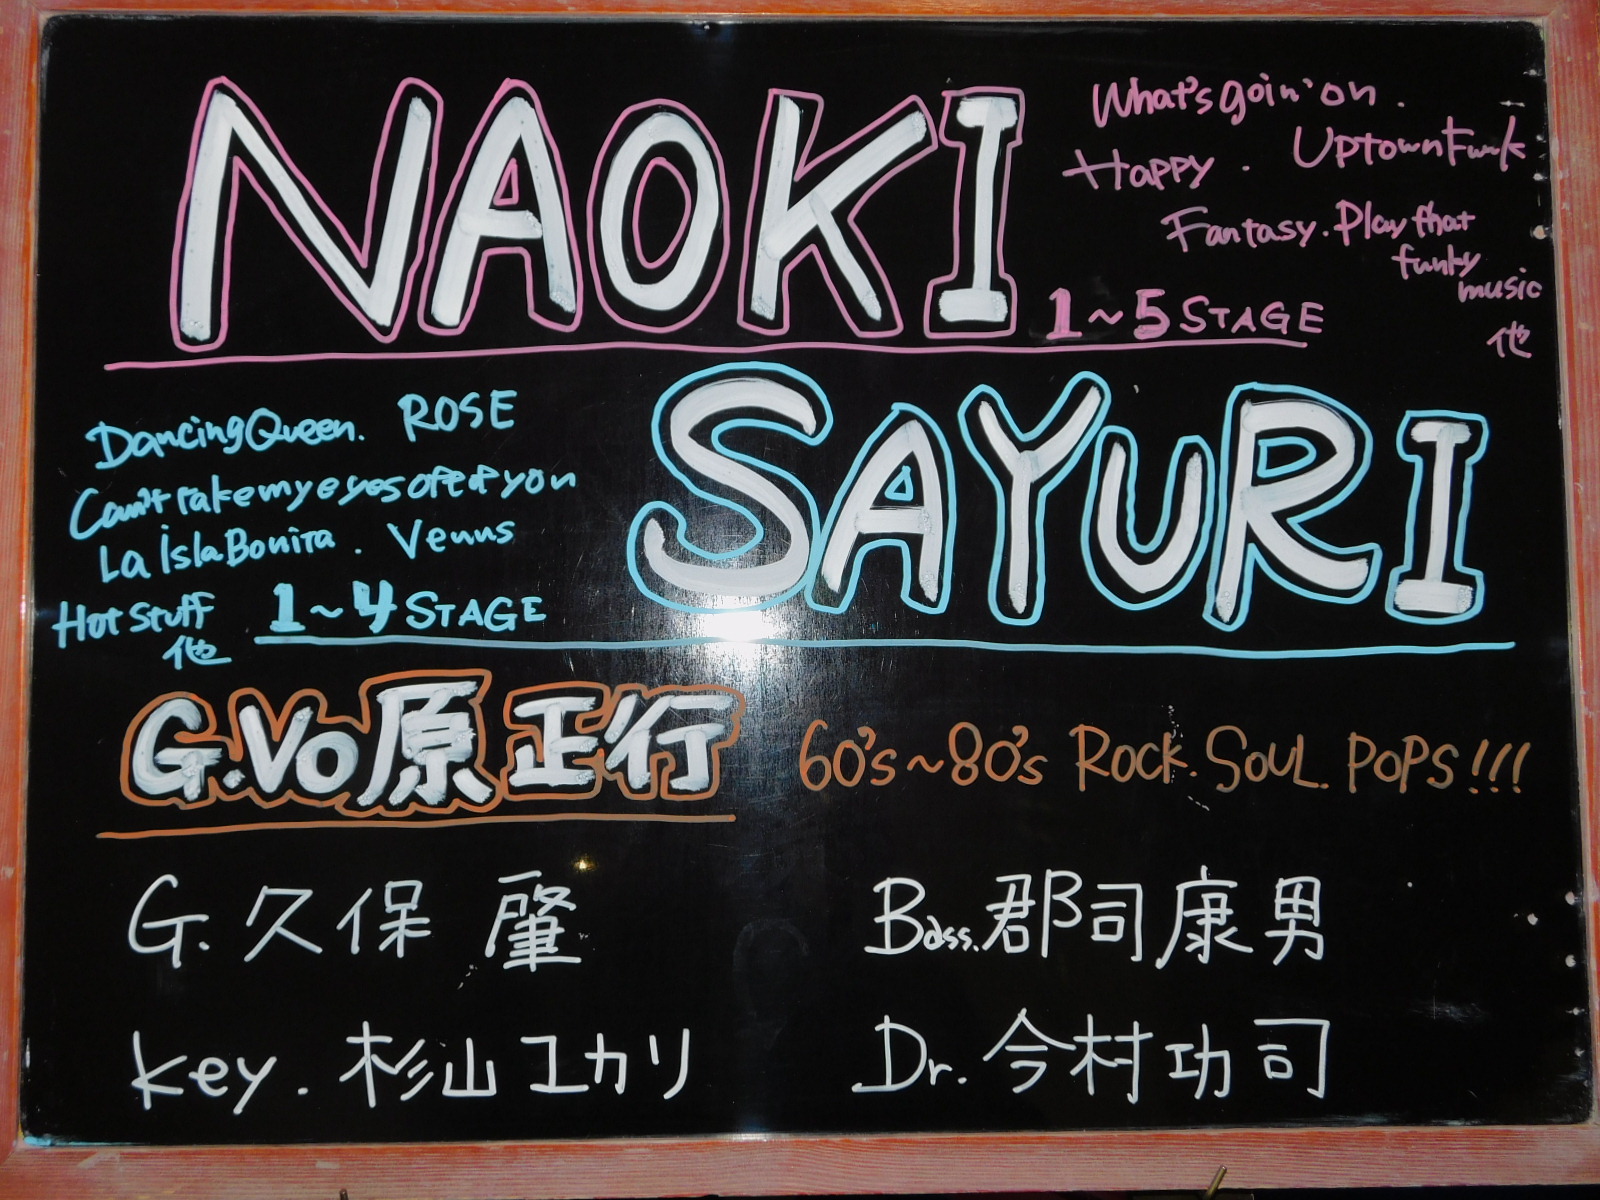 NAOKI
What's goin' on.
Happy. Uptown Funk
Fantasy. Play that
funky
music
他
1~5 STAGE
SAYURI
Dancing Queen. ROSE
Can't take my eyes off of you
La isla Bonita. Venus
Hot Stuff
他
1~4 STAGE
G.Vo 原 正行
60's~80's ROCK. SOUL. POPS!!!
G. 久保 肇
Bass. 郡司康男
Key. 杉山ユカリ
Dr. 今村功司